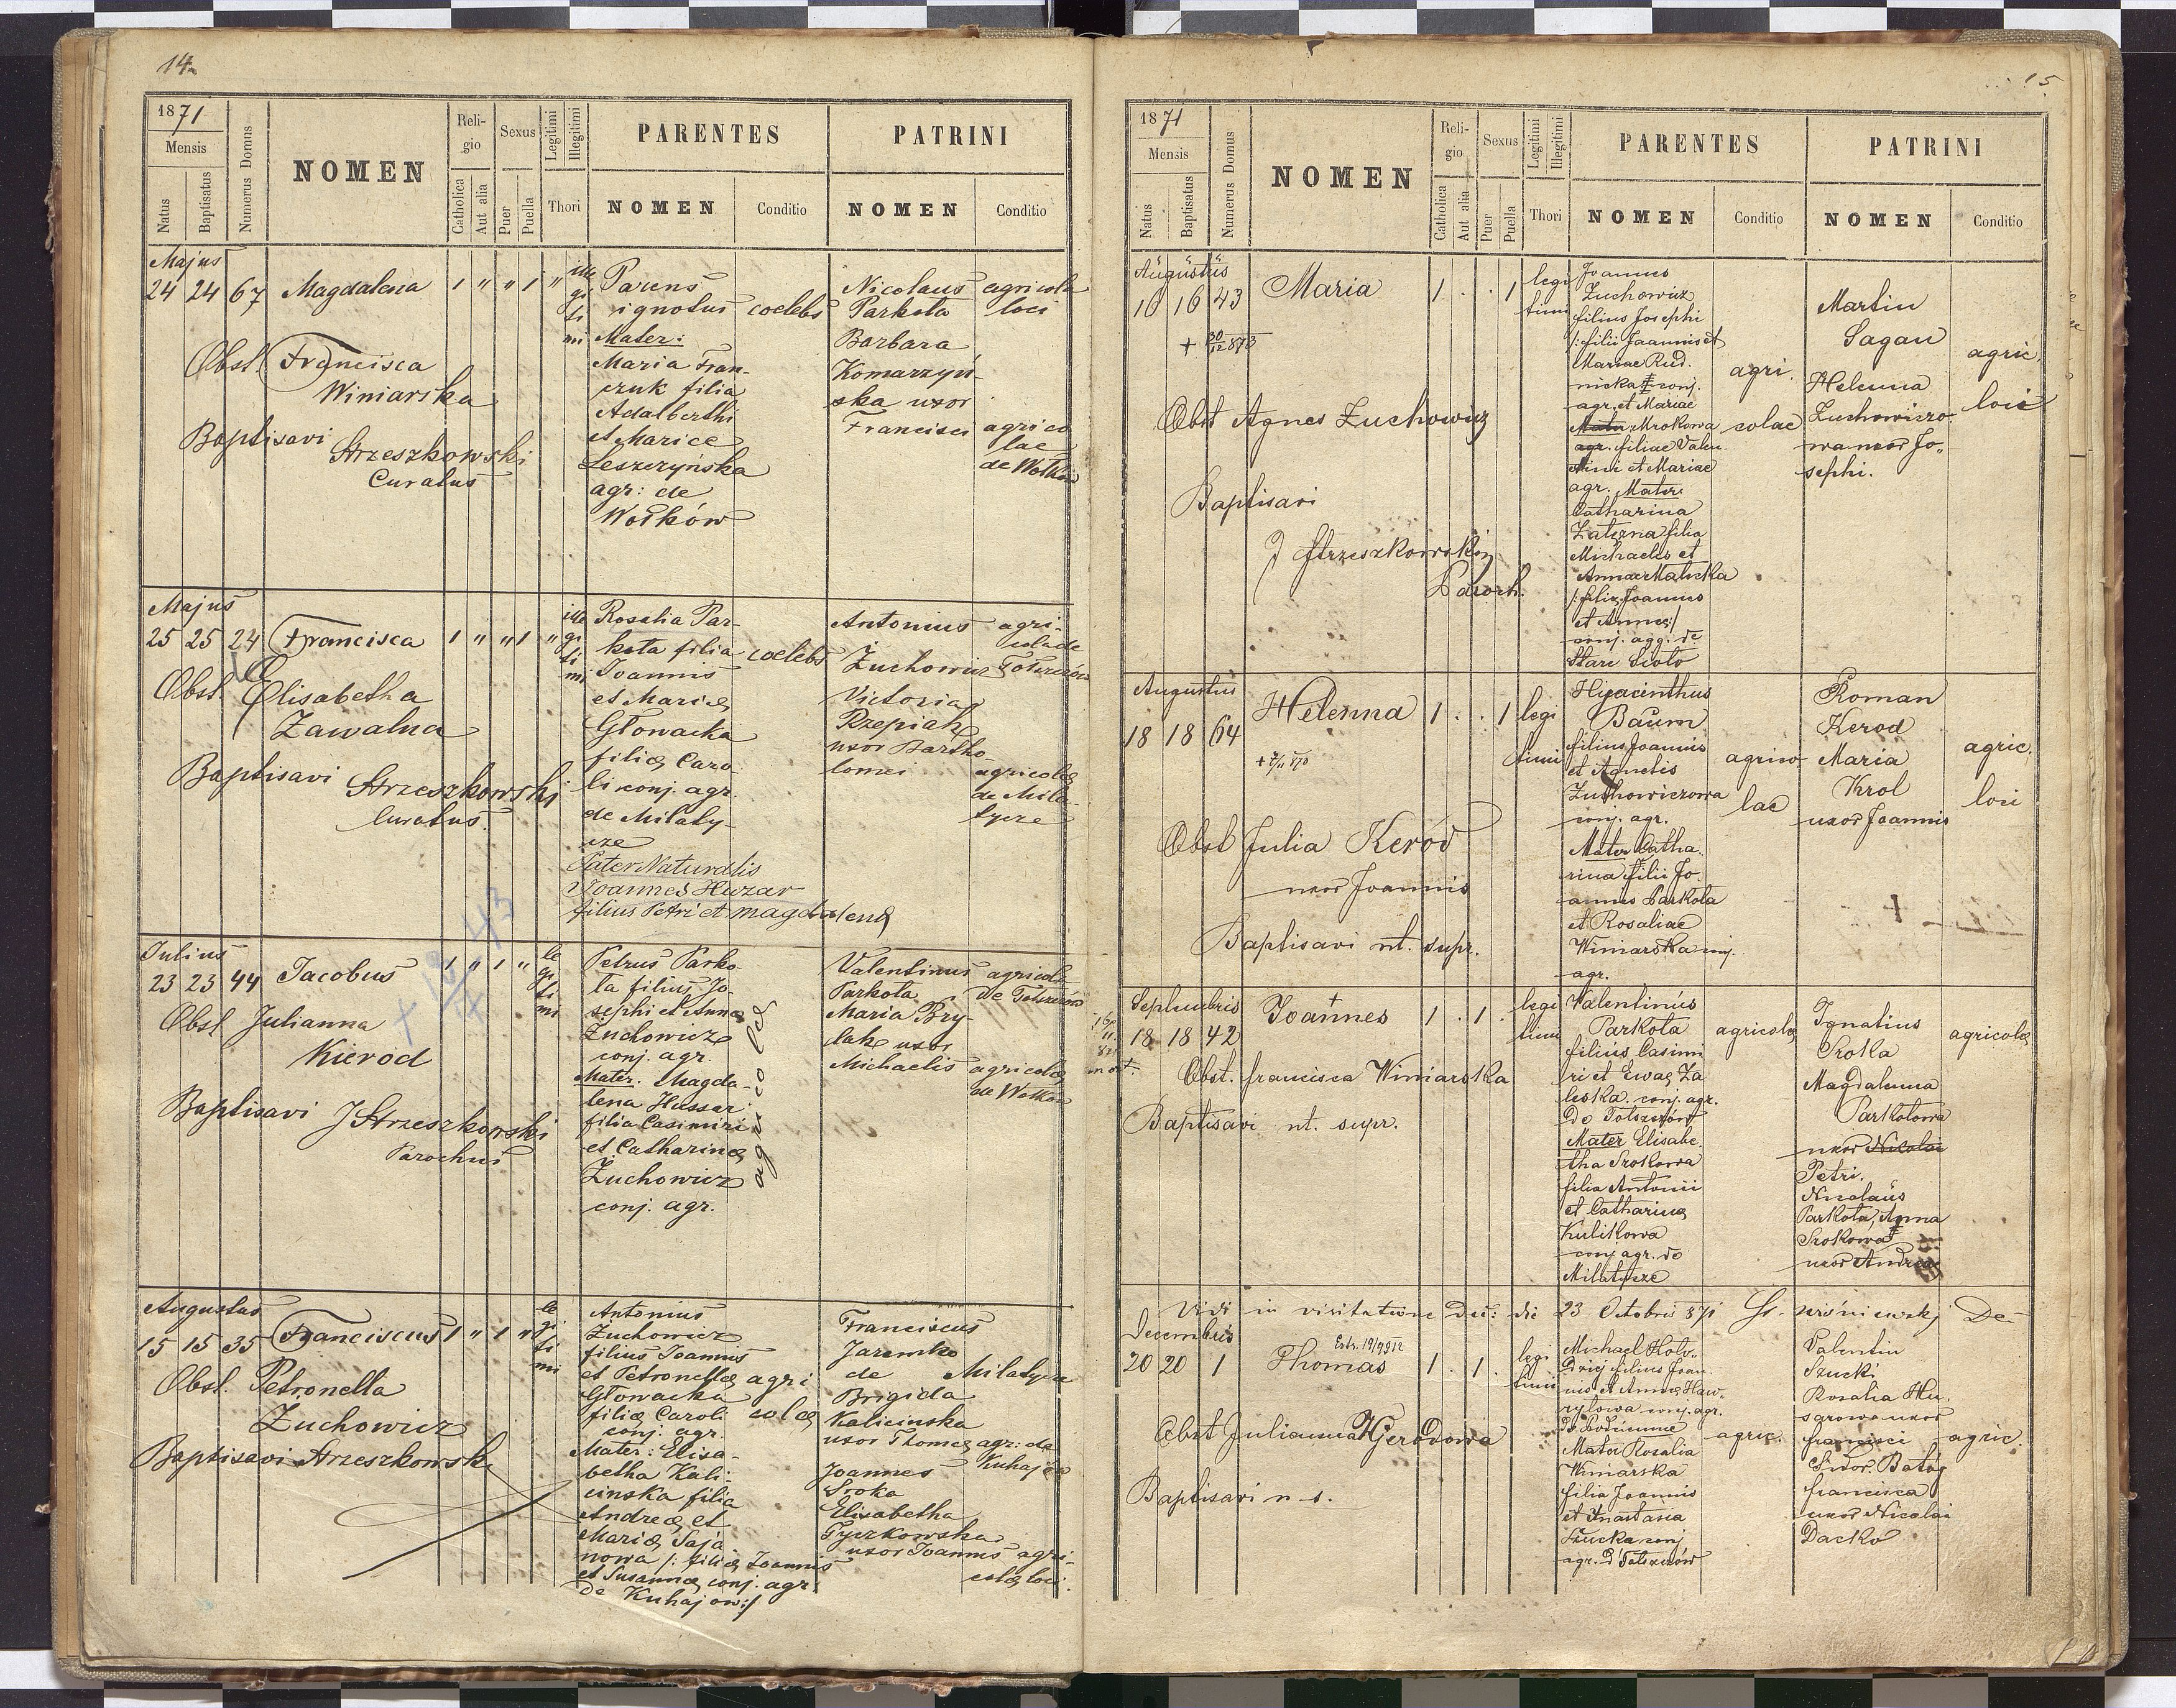 14.
1871
Mensis
Natus
Baptisatus
Numerus Domus
NOMEN
Reli-
gio
Catholica
Aut alia
Sexus
Puer
Puella
Legitimi
Illegitimi
Thori
PARENTES
NOMEN
Conditio
PATRINI
NOMEN
Conditio
Majus
24 24 67 Magdalena 1 " " 1 "
ille
gi
ti
mi
Obst. Francisca
Winiarska
Baptisavi Strzeszkowski
Curatus
Parens
ignotus coelebs
Mater:
Maria Fran-
czuk filia
Adalberthi
et Mariæ
Leszczyńska
agr: de
Wołków
Nicolaus agricola
Parkota loci
Barbara
Komarzyń-
ska uxor
Francisci agrico
lae
de Wołków
Majus
25 25 24 Francisca 1 " " 1 "
ille
gi
ti
mi
Obst. Elisabetha
Zawalna
Baptisavi Strzeszkowski
Curatus.
Rosalia Par-
kota filia coelebs
Joannis
et Mariæ
Głowacka
filiæ Caro-
li conj. agr.
de Milaty-
cze
Pater Naturalis
Joannes Huzar
filius Petri et Magdalenæ
Antonius agri-
cola de
Żuchowicz Tołszczów
Victoria
Rzepiak
uxor Bartho-
lomei agricolæ
de Mila-
tycze
Julius
23 23 44 Jacobus 1 " 1 "
le
gi
ti
mi
Obst. Julianna
Kierod
Baptisavi J Strzeszkowski
Parochus
Petrus Parko-
ta filius Jo-
sephi et Annæ
Żuchowicz
conj. agr.
Mater. Magda-
lena Hussar
filia Casimiri
et Catharinæ
Żuchowicz
conj. agr.
agricolæ
Valentinus agricola
Parkota de Tołszczów
Maria Bry-
lak uxor
Michaelis agricolæ
de Wołków
Augustus
15 15 35 Franciscus 1 " 1 "
le
gi
ti
mi
Obst. Petronella
Żuchowicz
Baptisavi Strzeszkowski
Antonius
Żuchowicz
filius Joannis
et Petronellæ agri
Głowacka
filiæ Caroli colæ
conj. agr.
Mater: Elisa-
betha Kali-
cinska filia
Andreæ et
Mariæ Saja
nowa /: filiæ Joannis
et Susannæ conj. agr.
de Kuhajow :/
Franciscus
Jaremko
de Milatycze
Brigida
Kalicinska
uxor Thomæ agr: de
Kuhajów
Joannes
Sroka
Elisabetha
Tyczkowska
uxor Joannis agri-
colæ loci.
15
1871
Mensis
Natus
Baptisatus
Numerus Domus
NOMEN
Reli-
gio
Catholica
Aut alia
Sexus
Puer
Puella
Legitimi
Illegitimi
Thori
PARENTES
NOMEN
Conditio
PATRINI
NOMEN
Conditio
Augustus
16 16 43 Maria 1 . . 1
legi
timi
+ 30/12 873
Obst Agnes Żuchowicz
Baptisavi
J Strzeszkowski
Paroch.
Joannes
Żuchowicz
filius Josephi
/: filii Joannis et
Mariae Rud.
nicka conj.
agr. et Mariae
Mrokowa
agr. filiae Valen.
tini et Mariae
agr. Mater
Catharina
Zaterzna filia
Michaelis et
Annae Malicka
/: filiæ Joannes
et Annæ :/
conj. agg. de
Stare Sioło
agri.
colae
Martin
Sagan
Helenna
Żuchowiczo.
wa uxor Jo„
sephi.
agric.
loci
Augustus
18 18 64 Helenna 1 . . 1
legi
timi
Obst Julia Keród
uxor Joannis
Baptisavi ut. supr.
Hyacinthus
Baum
filius Joannis
et Agnetis
Żuchowiczowa
conj. agr.
Mater Catha.
rina filii Jo.
annis Parkota
et Rosaliae
Winiarska conj.
agr.
agrico
lae
Roman
Kerod
Maria
Krol
uxor Joannis
agric.
loci
Septembris
18 18 42 Joannes 1 . 1 .
legi
timi
Obst. francisca Winiarska
Baptisavi ut. supr.
Valentinus
Parkota
filius Casimi
ri et Ewæ Za
leska. conj. agr.
De Tołszczów
Mater Elisabe.
tha Srokowa
filia Antonii
et Catharinæ
Kulikowa
conj agr. de
Milatycze
agricolæ
Ignatius
Sroka
Magdalenna
Parkotowa
uxor Nicolai
Petri.
Nicolaus
Parkota, Anna
Srokowa
uxor Andreæ
agricolæ
Vidi in visitatione Dec: die 23 Octobris 871
Decembris
20 20 1 Thomas 1 . 1 .
legi
timi
Extr. 19/9 912
Obst Julianna Kierodowa
Baptisavi u s.
Michael Hoło„
Dziej filius Joan.
nis et Annæ Haw„
ryłowa conj. agr.
Mater Rosalia
Winiarska
filia Joannis
et Anastasia
Szucka conj
agr. D Tołszczów
agric.
Valentin
Szucki
Rosalia Hu.
sarowa uxor
francisci
francisca
uxor Nicolai
Dacko
agric.